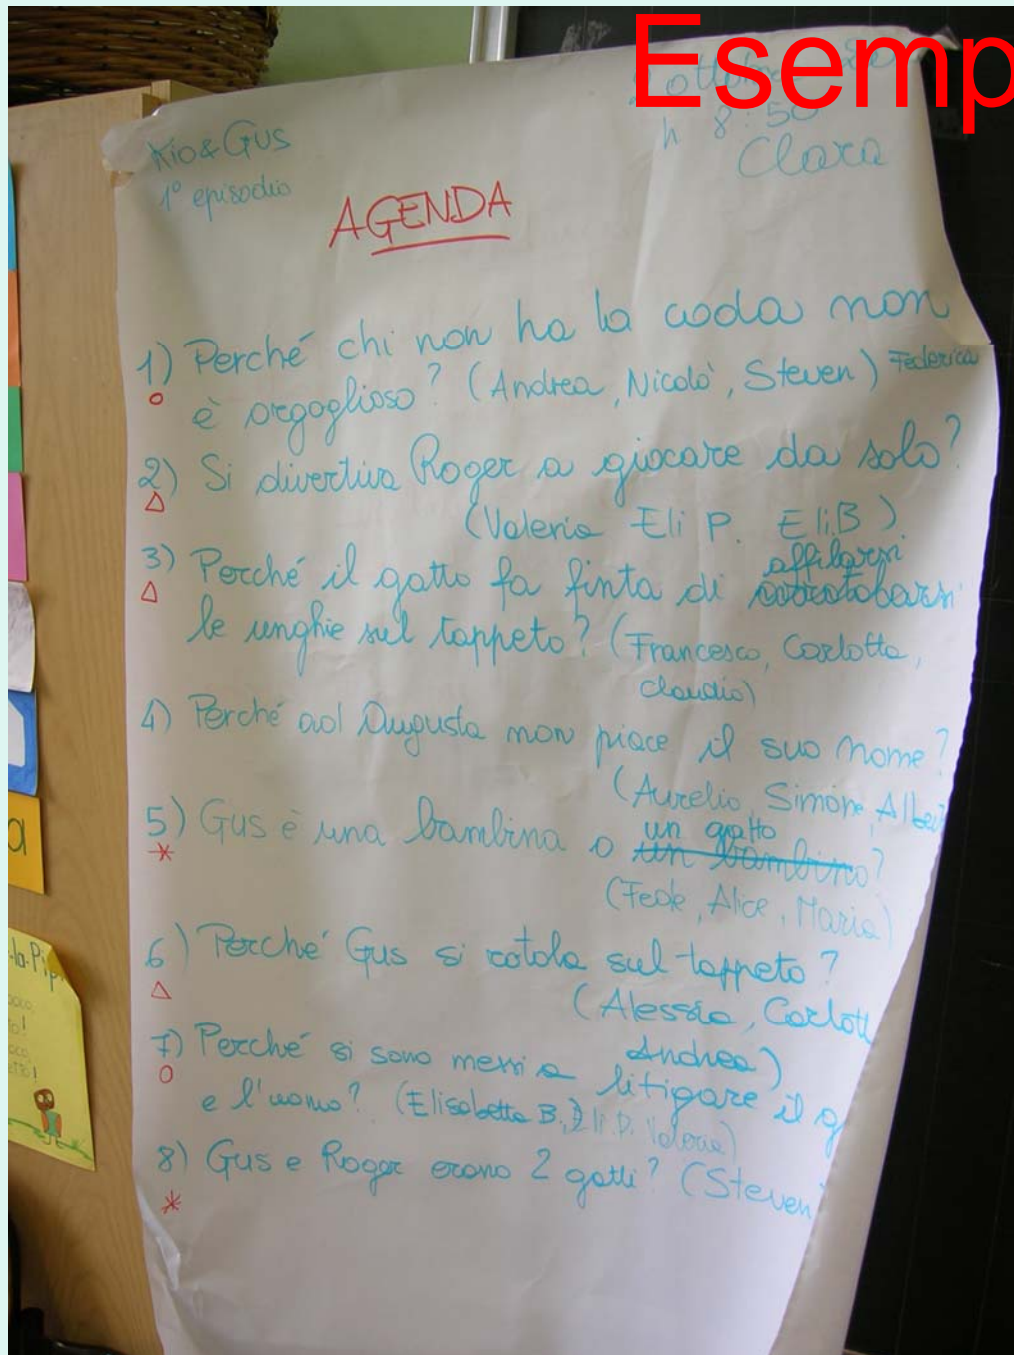 Esemp
ottobre
h 8:50
Clara
Kio&Gus
1° episodio
AGENDA
1) Perché chi non ha la coda non
è orgoglioso? (Andrea, Nicolò, Steven) Federica
2) Si divertiva Roger a giocare da solo?
(Valeria Eli P. Eli.B)
affilarsi
3) Perché il gatto fa finta di
le unghie sul tappeto? (Francesco, Carlotta,
Claudio)
4) Perché ad Augusta non piace il suo nome?
(Aurelio, Simone,
un gatto
5) Gus è una bambina o un bambino?
(Fede, Alice, Maria)
6) Perché Gus si rotola sul tappeto?
(Alessia, Carlott
Andrea)
7) Perché si sono messi a litigare il g
e l'uomo? (Elisabetta B., Eli P. Valeria)
8) Gus e Roger erano 2 gatti? (Steven